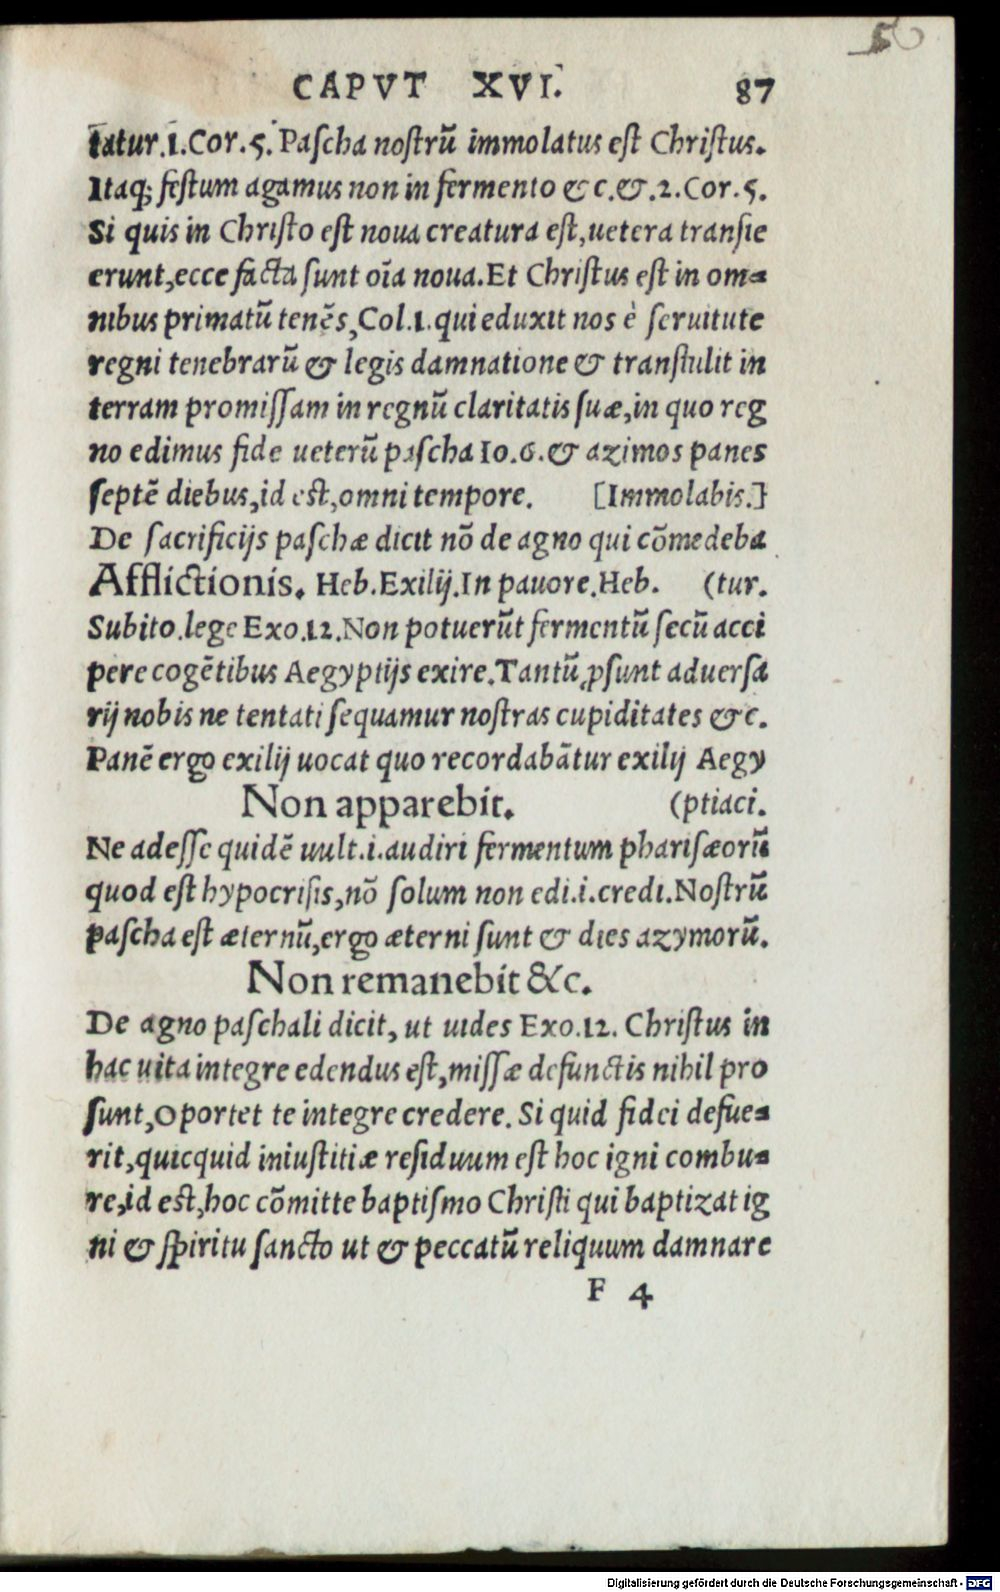 CAPVT XVI. 87
tatur.1.Cor.5. Paſcha noſtrū immolatus eſt Chriſtus.
Itaq; feſtum agamus non in fermento &c.&.2.Cor.5.
Si quis in Chriſto eſt noua creatura eſt,uetera tranſie
erunt,ecce facta ſunt oīa noua.Et Chriſtus eſt in om-
nibus primatū tenēs,Col.1.qui eduxit nos è ſeruitute
regni tenebrarū & legis damnatione & tranſtulit in
terram promiſſam in regnū claritatis ſuæ,in quo reg
no edimus fide ueterū paſcha Io.6.& azimos panes
ſeptē diebus,id est,omni tempore. [Immolabis.]
De ſacrificijs paſchæ dicit nō de agno qui cōmedeba
Afflictionis. Heb.Exilij.In pauore.Heb. (tur.
Subito.lege Exo.12.Non potuerūt fermentū ſecū acci
pere cogētibus Aegyptijs exire.Tantū ꝓſunt aduerſa
rij nobis ne tentati ſequamur noſtras cupiditates &c.
Panē ergo exilij uocat quo recordabātur exilij Aegy
Non apparebit. (ptiaci.
Ne adeſſe quidē uult.i.audiri fermentum phariſæorū
quod eſt hypocriſis,nō ſolum non edi.i.credi.Noſtrū
paſcha eſt æternū,ergo æterni ſunt & dies azymorū.
Non remanebit &c.
De agno paſchali dicit, ut uides Exo.12. Chriſtus in
hac uita integre edendus eſt,miſſæ defunctis nihil pro
ſunt,Oportet te integre credere. Si quid fidei defue-
rit,quicquid iniuſtitiæ reſiduum eſt hoc igni combu-
re,id est,hoc cōmitte baptiſmo Chriſti qui baptizat ig
ni & ſpiritu ſancto ut & peccatū reliquum damnare
F 4
Digitalisierung gefördert durch die Deutsche Forschungsgemeinschaft - DFG